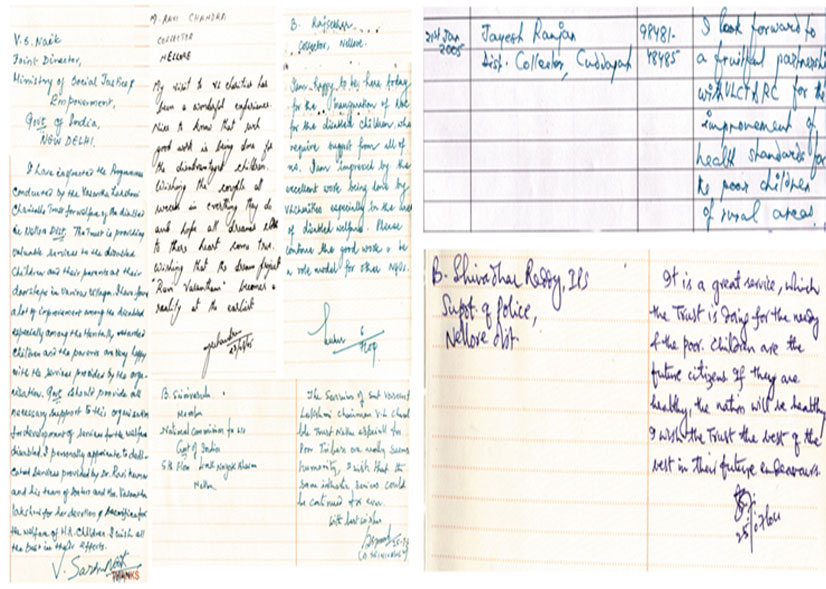 V.S. Naik
Joint Director,
Ministry of Social Justice
Empowerment,
Govt of India,
NEW DELHI.
I have inspected the Programmes
conducted by the Vasantha Lakshmi
Charitable Trust for welfare of the disabled
in Nellore Dist. The Trust is providing
valuable services to the disabled
Children and their parents at their
doorsteps in various villages. I have seen
a lot of improvement among the disabled
especially among the Mentally retarded
Children and the parents are very happy
with the services provided by the orga-
nisation. Govt should provide all
necessary support to this organisation
for development of services for the welfare
disabled I personally appreciate to dedi-
cated services provided by Dr. Ravi Kumar
and his team of Doctors and the Vasantha
Lakshmi for her devotion & Sacrifice for
the welfare of M.R. Children. I wish all
the best in their efforts.
THANKS
M. RAVI CHANDRA
COLLECTOR
NELLORE
My visit to VL charities has
been a wonderful experience.
Nice to know that such
good work is being done for
the disadvantaged children.
Wishing the people all
success in everything they do
and hope all dreams
to their heart come true.
Wishing that the dream project
"Ravi Vasantham" becomes a
reality at the earliest
B. Rajsekhar
Collector, Nellore.
I am happy to be here today
for the Inauguration of
for the disabled children, who
require support from all of
us. I am impressed by the
excellent work being done by
VLCharities especially in the area
of disabled welfare. Please
continue the good work & be
a role model for other NGOs.
B. Srinivasulu
Member
National Commission for
Govt of India
5th Floor
Nellore
The Services of Smt Vasantha
Lakshmi chairman
Trust Nellore especially for
Poor Tribes are really
humanity, I wish that the
same services could
be continued for ever.
with best wishes
21st Jan
2005
Jayesh Ranjan
Dist. Collector, Cuddapah
98481-
48485
I look forward to
a fruitful partnership
with VLCT&RC for the
improvement of
health standards for
the poor children
of rural areas.
B. Shivadhar Reddy, IPS
Supdt. of Police,
Nellore dist
It is a great service, which
the Trust is doing for the needy
& the poor. Children are the
future citizens. If they are
healthy, the nation will be healthy
I wish the Trust the best of the
best in their future endeavours.